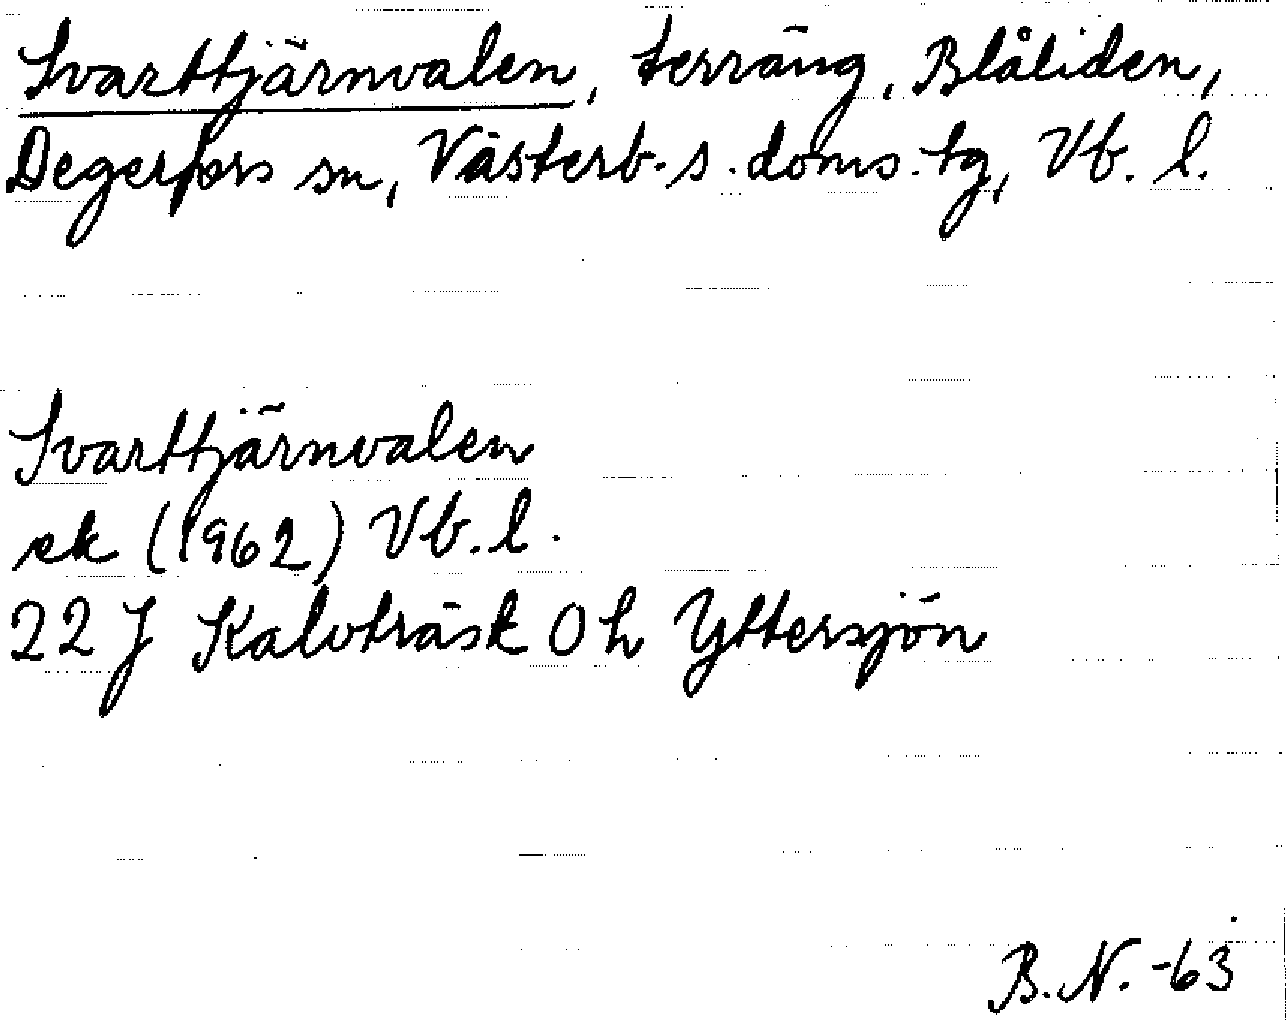 Svarttjärnvalen, terräng, Blåliden,
Degerfors sn, Västerb. s. doms. tg, Vb. l.
Svarttjärnvalen
ek (1962) Vb. l.
22 J Kalvträsk 0 h Yttersjön
B. N. -63